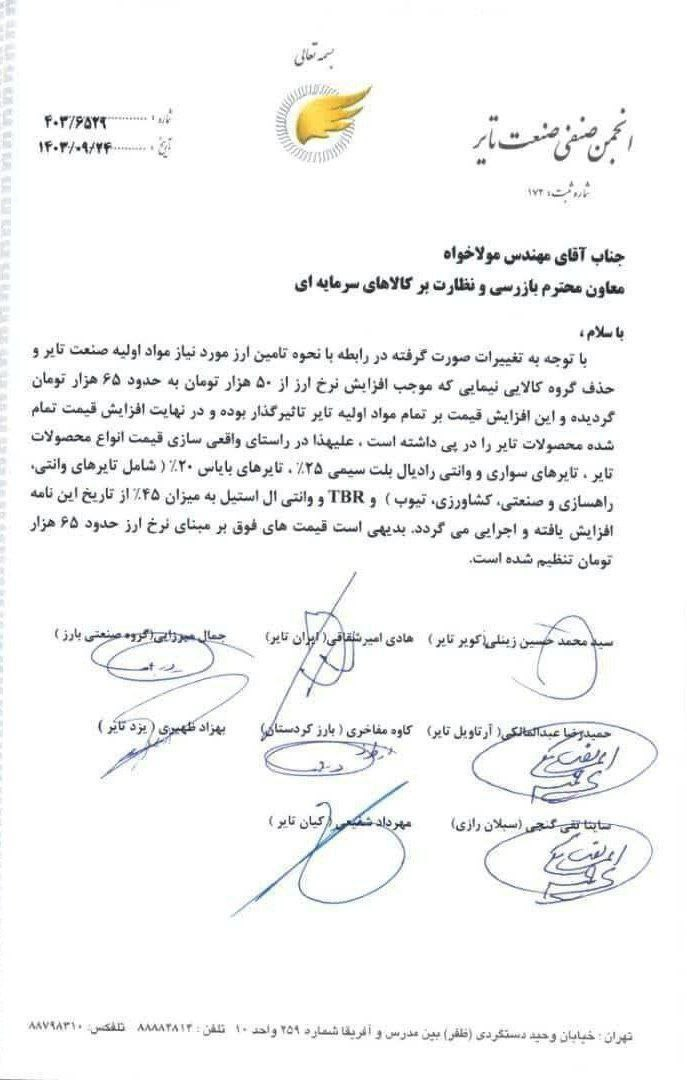 بسمه تعالی
انجمن صنفی صنعت تایر
شماره ثبت: ۱۷۲
شماره : ۴۰۳/۶۵۲۹
تاریخ : ۱۴۰۳/۰۹/۲۴
جناب آقای مهندس مولاخواه
معاون محترم بازرسی و نظارت بر کالاهای سرمایه ای
با سلام ،
با توجه به تغییرات صورت گرفته در رابطه با نحوه تامین ارز مورد نیاز مواد اولیه صنعت تایر و
حذف گروه کالایی نیمایی که موجب افزایش نرخ ارز از ۵۰ هزار تومان به حدود ۶۵ هزار تومان
گردیده و این افزایش قیمت بر تمام مواد اولیه تایر تاثیرگذار بوده و در نهایت افزایش قیمت تمام
شده محصولات تایر را در پی داشته است ، علیهذا در راستای واقعی سازی قیمت انواع محصولات
تایر ، تایرهای سواری و وانتی رادیال بلت سیمی ۲۵٪ ، تایرهای بایاس ۲۰٪ ( شامل تایرهای وانتی،
راهسازی و صنعتی، کشاورزی، تیوب ) و TBR و وانتی ال استیل به میزان ۴۵٪ از تاریخ این نامه
افزایش یافته و اجرایی می گردد. بدیهی است قیمت های فوق بر مبنای نرخ ارز حدود ۶۵ هزار
تومان تنظیم شده است.
سید محمد حسین زینلی(کویر تایر ) هادی امیرشقاقی( ایران تایر) جمال میرزایی(گروه صنعتی بارز )
حمیدرضا عبدالمالکی( آرتاویل تایر) کاوه مفاخری ( بارز کردستان) بهزاد ظهیری ( یزد تایر )
ساینا تقی گنجی (سبلان رازی) مهرداد شفیعی ( کیان تایر )
تهران : خیابان وحید دستگردی (ظفر) بین مدرس و آفریقا شماره ۲۵۹ واحد ۱۰ تلفن : ۸۸۸۸۲۸۱۲ تلفکس: ۸۸۷۹۸۳۱۰